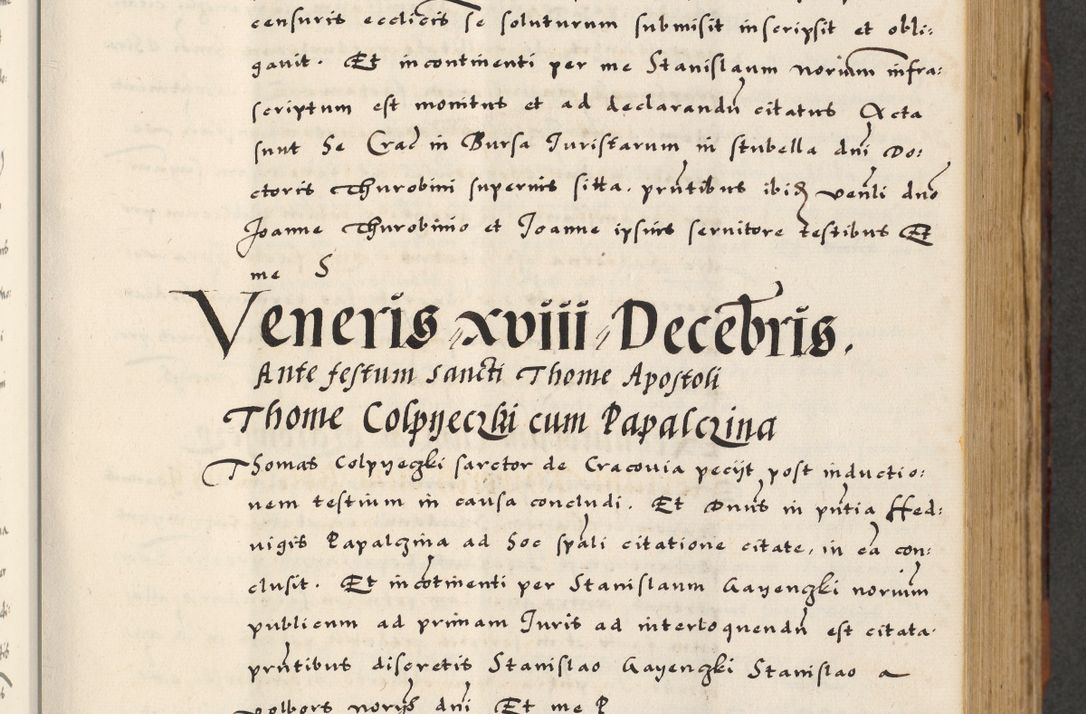 censuris ecclīcis se soluturum submisit inscripsit et obli:
gauit. Et incontinenti per me Stanislaum noriūm infra:
scriptum est monitus et ad declarandū citatus Acta
sunt Se Crac̄ in Bursa Iuristarum in stubella dn̄i Do:
ctoris Thurobini supernis sitta. pn̄tibus ibiꝫ ven̄li dn̄o
Joanne Thurobinio et Joanne ipsius seruitore testibus Et
me S
Veneris xviii Decēbris.
Ante festum Sancti Thome Apostoli
Thome Colpyeczki cum Papalczina
Thomas Colpyeczki sarctor de Cracouia pecijt post inductio:
nem testium in causa concludi. Et Dnus in pn̄tia Hed:
uigis Papalczina ad Soc sp̄ali citatione citate, in ea con:
clusit. Et incōtinenti per Stanislaum Gayenczki noriūm
publicum ad primam Iuris ad interloquendū est citata
pn̄tibus discretis Stanislao Gayenczki Stanislao a
Volbors norijs dn̄i Et me